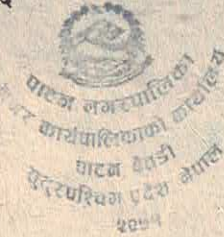 पाटन नगरपालिका
नगर कार्यपालिकाको कार्यालय
पाटन बैतडी
सुदूरपश्चिम प्रदेश नेपाल
२०७५